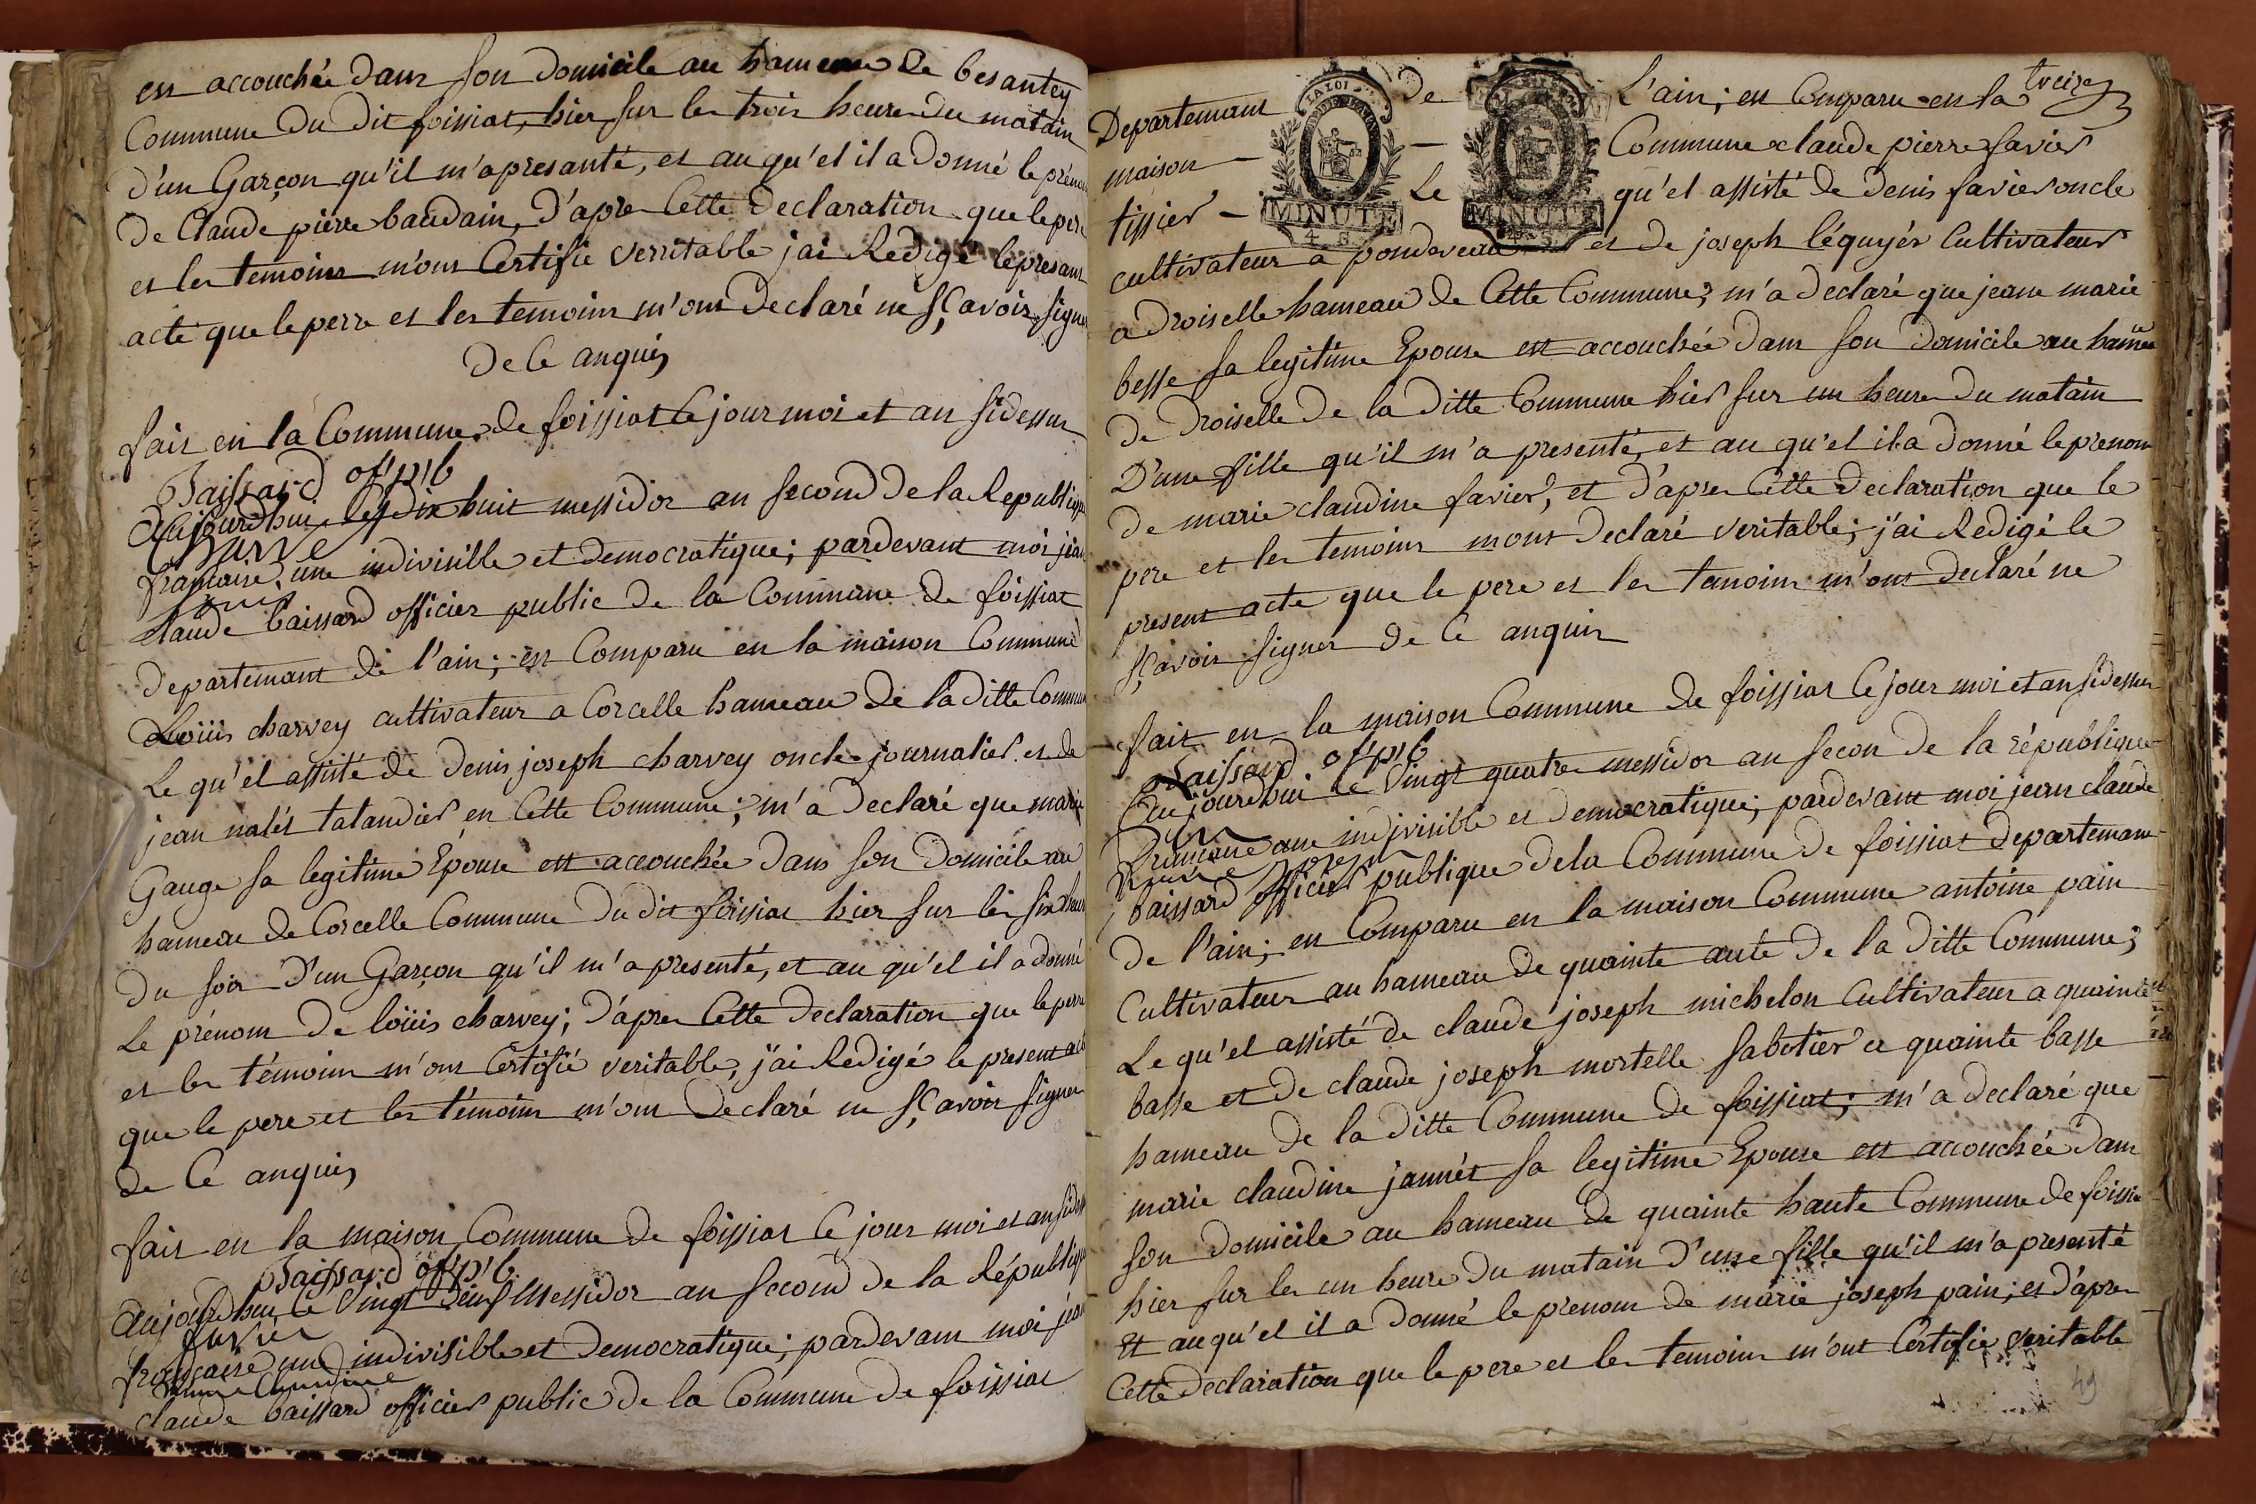 est accouchée dans son domicile au hameau de besantey
Commune du dit foissiat, hier sur les trois heures du matain
d'un Garçon qu'il m'a presanté, et au qu'el il a donné le prénom
de Claude pierre baudain, d'apres Cette declaration que le pere
et les temoins m'ont Certifié verritable jai Redigé le presant
acte que le perre et les temoins m'ont declaré ne sçavoir signer
de Ce anquis
fait en la Commune de foissiat Ce jour moi et an sidessus
Baissard of. p'b
Aujourdhui le dix huit messidor an second de la Republique
Charve
francaise, une indivisible et democratique; pardevant moi jean
Louis
Claude baissard officier public de la Commune de foissiat
departemant de l'ain; est Comparu en la maison Commune
Loüis charvey cultivateur a Corcelle hameau de la ditte Commune
Le qu'el assisté de denis joseph charvey oncle journalier et de
jean nalét talandier en Cette Commune; m'a declaré que marie
Gauge sa legitime Epouse est accouchée dans son domicile au
hameau de Corcelle Commune du dit foissiat hier sur les six heures
du soir d'un Garçon qu'il m'a presenté, et au qu'el il a donné
Le prénom de loüis charvey; d'apres Cette declaration que le perre
et les témoins m'ont Certifié veritable, j'ai Redigé le present acte
que le pere et les témoins m'ont declaré ne sçavoir signer
de Ce anquis
fait en la maison Commune de foissiat Ce jour moi et an sidessus
Baissard of. p'b.
Aujourdhui le vingt deux Messidor an second de la République
favier
francaise une indivisible et democratique; pardevant moi jean
Claudine
claude baissard officier public de la Commune de foissiat
treize
Departemant de L'ain; est Comparu en la
maison — — Commune claude pierre favier
tissier — Le qu'el assisté de denis favier oncle
LA LOI
MINUTE
MINUTE
cultivateur a pondeveau et de joseph léquyér Cultivateur
a droiselle hameau de Cette Commune; m'a declaré que jeanne marie
besse sa legitime Epouse est accouchée dans son domicile au hameau
de droiselle de la ditte Commune hier sur un heure du matain
D'une fille qu'il m'a presenté, et au qu'el il a donné le prenom
de marie claudine favier, et d'apres Cette declaration que le
pere et les temoins m'ont declaré veritable; j'ai Redigé le
present acte que le pere et les temoins m'ont declaré ne
sçavoir signer de Ce anquis
fait en la maison Commune de foissiat Ce jour moi et an sidessus
Baissard of. p'b
Aujourdhui le vingt quatre messidor an secon de la république
francaise une indivisible et democratique; pardevant moi jean claude
baissard officier publique de la Commune de foissiat departemant
de l'ain; est Comparu en la maison Commune antoine pain
Cultivateur au hameau de quainte aute de la ditte Commune;
Le qu'el assisté de claude joseph michelon Cultivateur a quainte
basse et de claude joseph mortelle sabotier a quainte basse
hameau de la ditte Commune de foissiat; m'a declaré que
marie claudine jannét sa legitime Epouse est accouchée dans
son domicile au hameau de quainte haute Commune de foissia
hier sur les un heure du matain d'une fille qu'il m'a presenté
Et au qu'el il a donné le prenom de marie joseph pain; et d'apres
Cette declaration que le pere et les temoins m'ont Certifié veritable
49